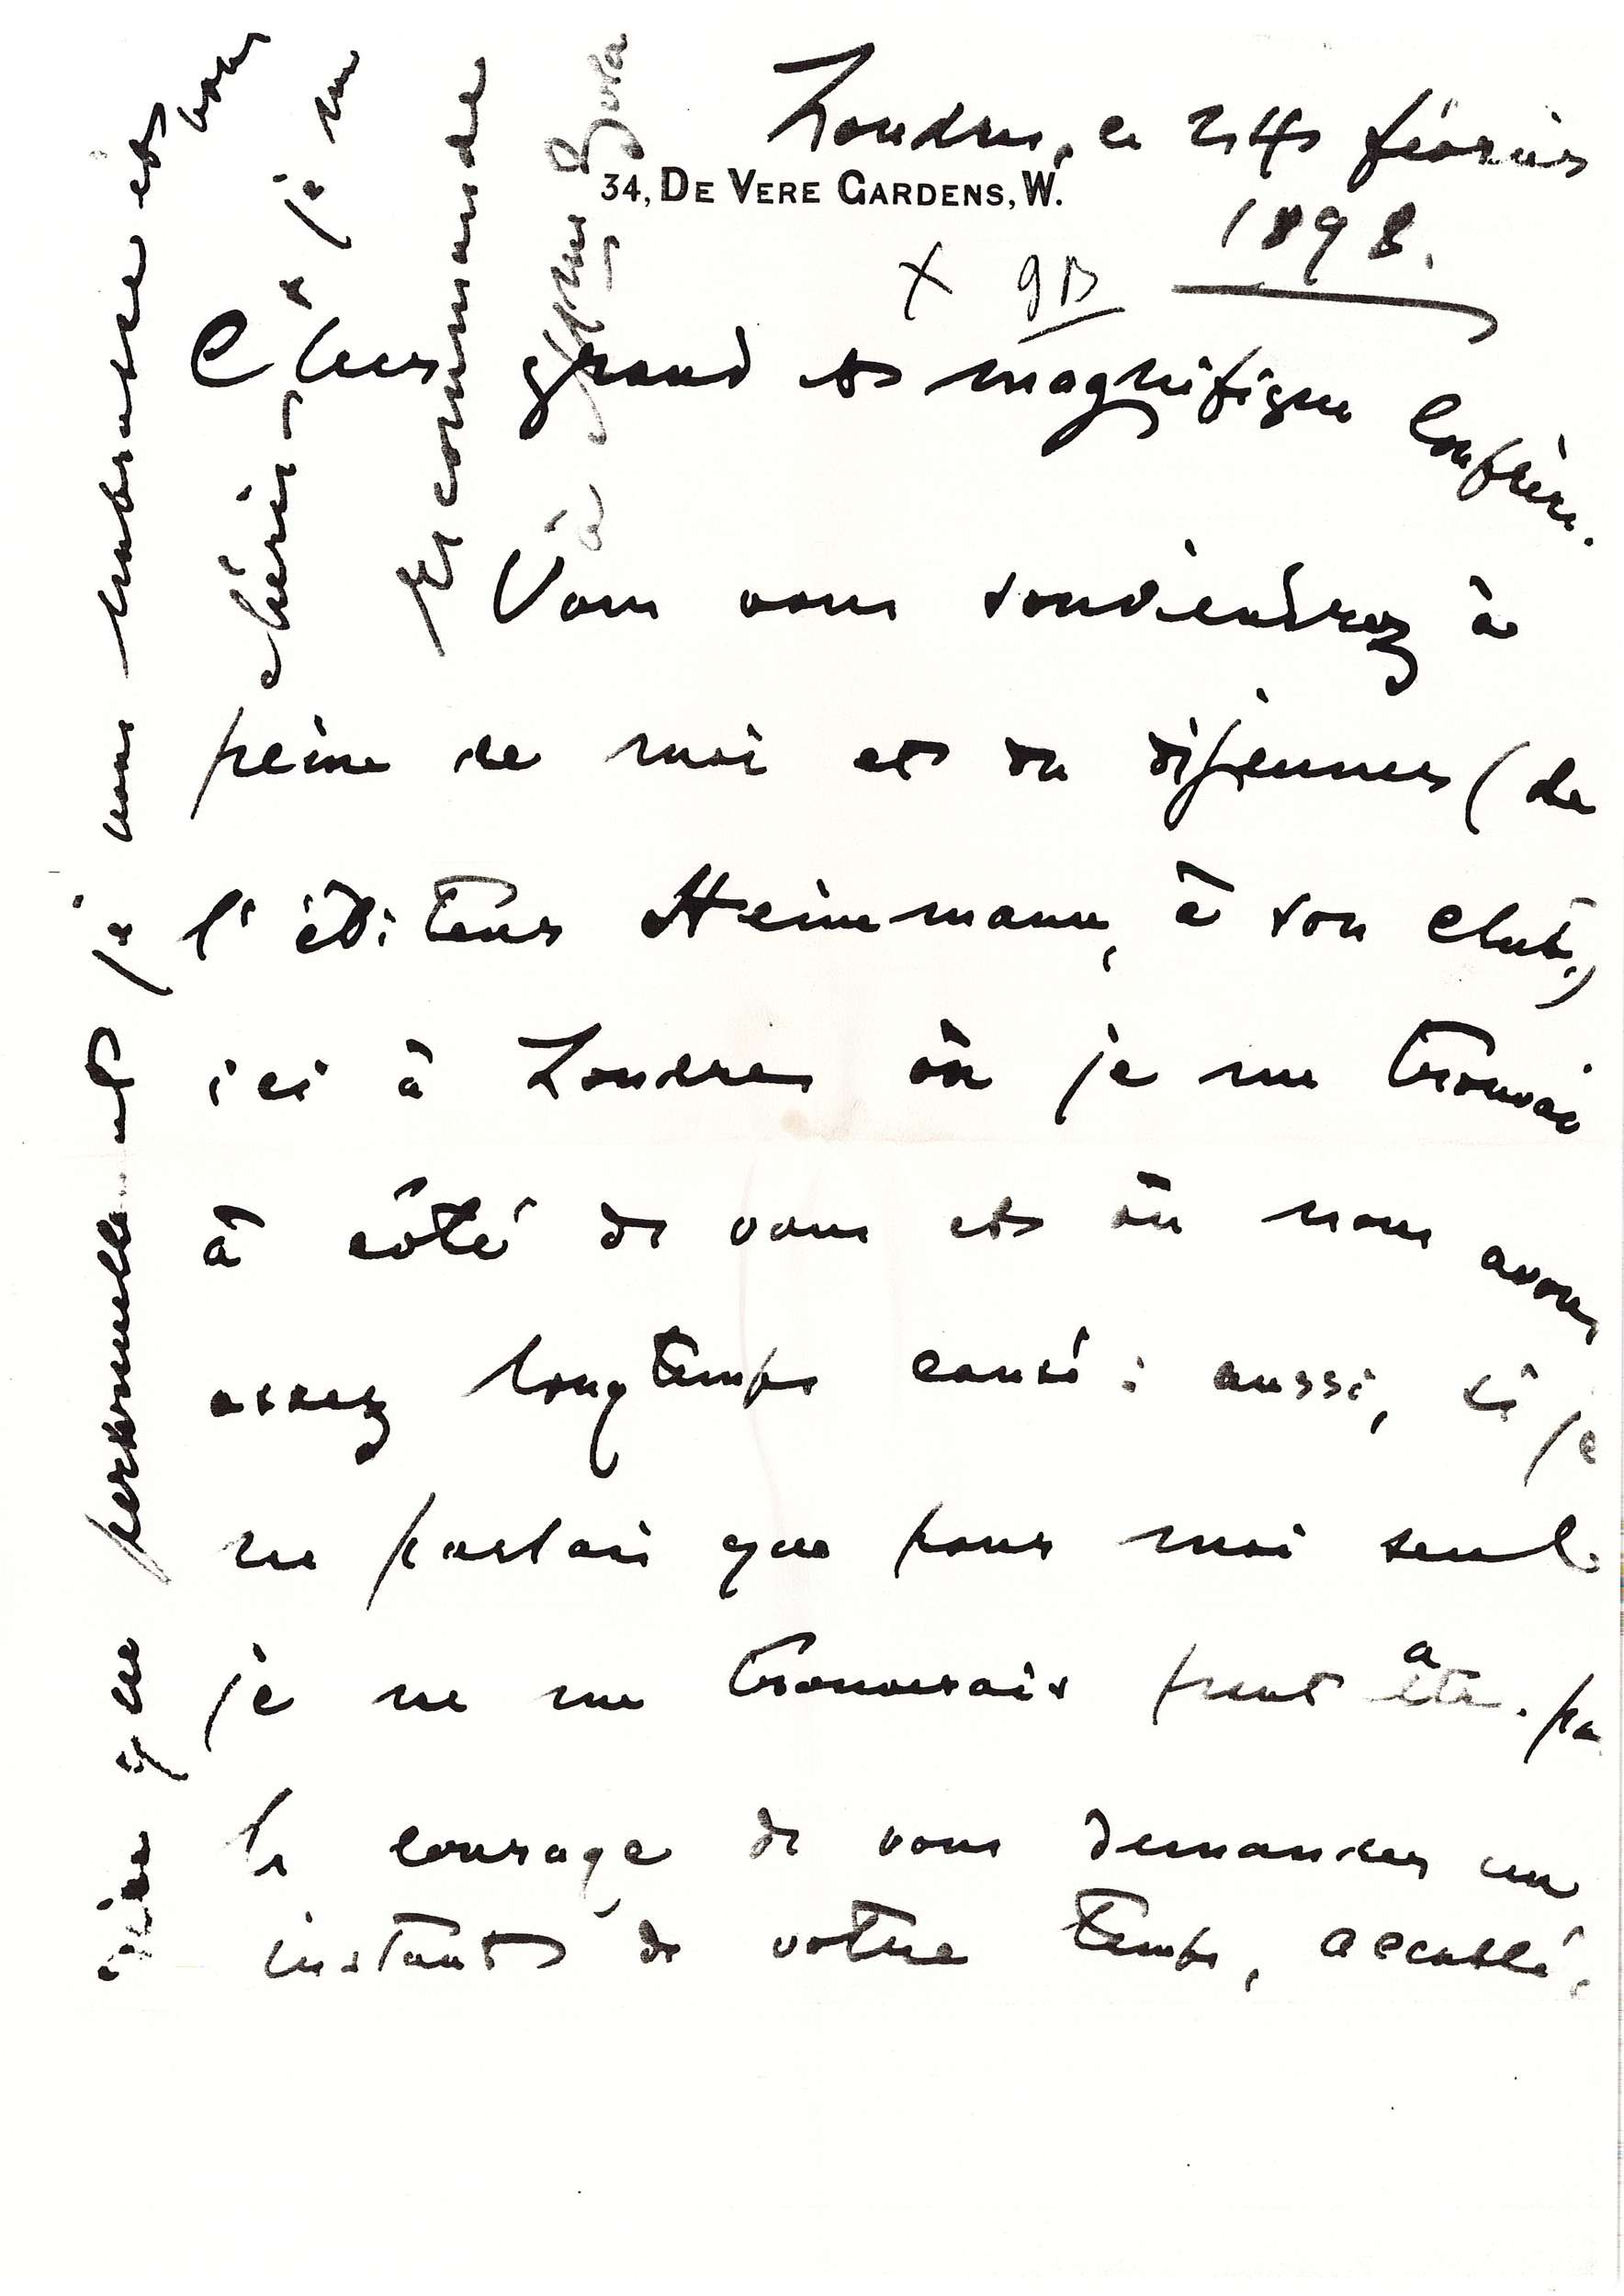 Londres, ce 24 février
34, DE VERE GARDENS, W.
1898.
X
Cher grand et magnifique Confrère.
Vous vous souviendrez à
peine de moi et du déjeuner (de
l'éditeur Heinemann, à son club,)
ici à Londres où je me trouvai
à côté de vous et où nous avons
assez longtemps causé : aussi, si je
ne parlais que pour moi seul
je ne me trouverais peut être pas
le courage de vous demander un
instant de votre temps, accablé,
que personnellement je vous embrasse et vous
chéris et je me
recommande
à Mme Zola